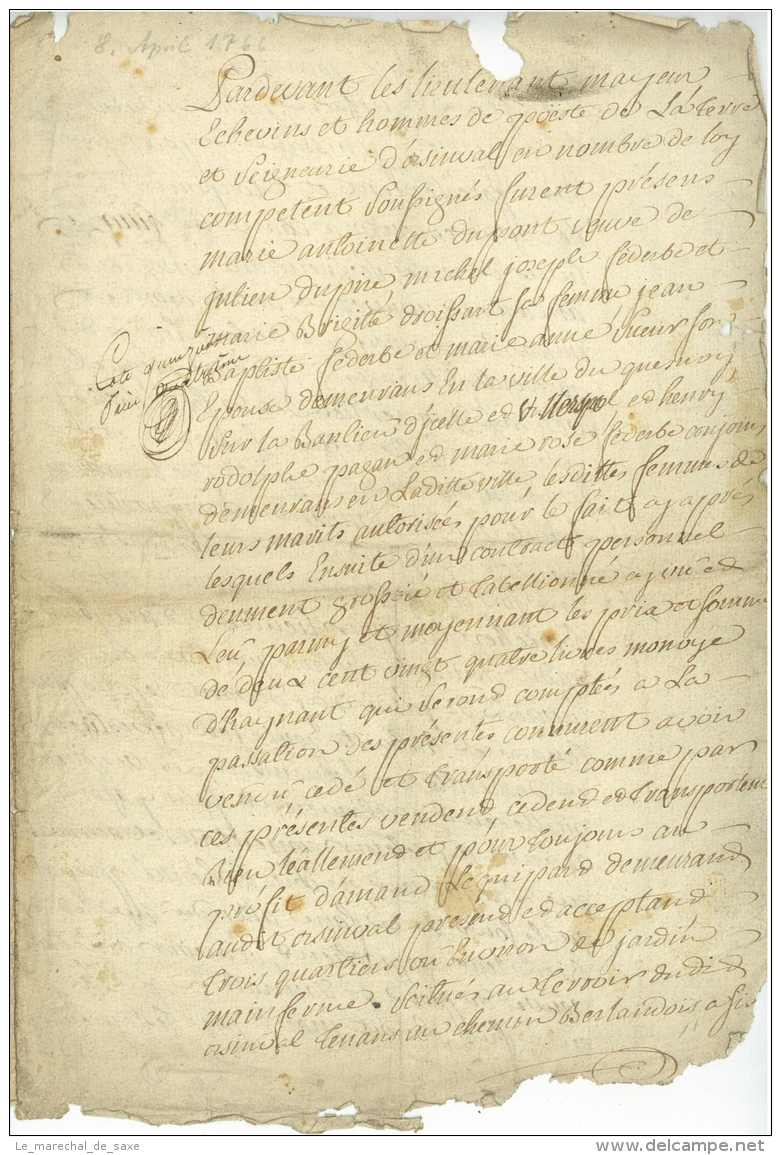 8. April 1766
Pardevant les lieutenant mayeur
Echevins et hommes de poëste de La terre
et Seigneurie d'orsinval en nombre de loy
competent Soussignés furent présens
marie antoinette dupont veuve de
julien dupire michel joseph féderbe et
marie Brigitte droissart sa femme jean
Baptiste féderbe et marie anne Sueur son
Epouse demeurans En la ville du quesnoy
Sur la Banlieu d'icelle et henry
rodolphe pagan et marie rose féderbe conjoins
demeurans en Laditte ville lesdittes femmes de
leurs marits autorisées pour le fait cy aprés
lesquels Ensuite d'un contract personnel
deument grossoié et tabellionné ayme ed
Leu parmy et moyennant les prix et somme
de deux cent vingt quatre livres monoye
d'haynaut qui Seront comptées a La
passation des présentes connurent avoir
vendu cedé et transporté comme par
ces présentes vendend cedend et transportent
Bien léallement et pour toujours au
profit d'amand Lequipard demeurand
audit orsinval présend ed acceptand
trois quartiers ou Environ de jardin
mainferme Scitués au terroir dudid
orsinval tenans au chemin Berlandois a Six
Cote quinze
Piece
Le_marechal_de_saxe
www.delcampe.net